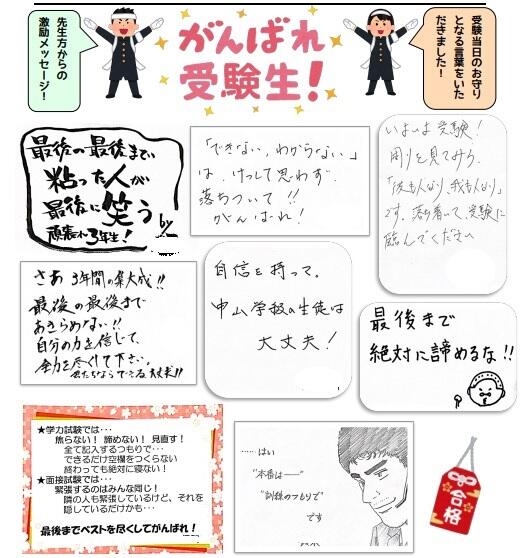 先生方からの
激励メッセージ!
がんばれ
受験生!
受験当日のお守り
となる言葉をいた
だきました!
最後の最後まで
粘った人が
最後に笑う
頑張れ3年生!
by
「できない,わからない」
は、けっして思わず
落ちついて!!
がんばれ!
いよいよ受験!
周りを見てみろ、
「彼も人なり、我も人なり」
です。落ち着いて、受験に
臨んでください
さあ 3年間の集大成!!
最後の最後まで
あきらめない!!
自分の力を信じて、
全力を尽くして下さい。
君たちならできる 大丈夫!!
自信を持って。
中山学校の生徒は
大丈夫!
最後まで
絶対に諦めるな!!
★学力試験では…
焦らない! 諦めない! 見直す!
全て記入するつもりで…
できるだけ空欄をつくらない
終わっても絶対に寝ない!
★面接試験では…
緊張するのはみんな同じ!
隣の人も緊張しているけど、それを
隠しているだけかも…
最後までベストを尽くしてがんばれ!
……はい
"本番は――"
"訓練のつもりで"
です
合格